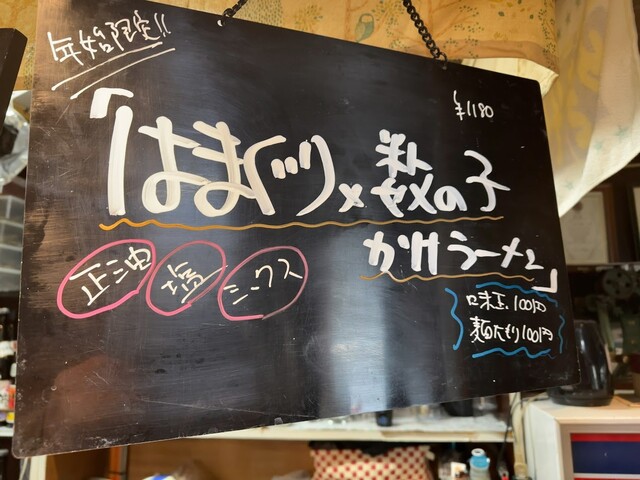 年始限定!!
¥1180
「はまぐり×数の子
かけラーメン」
正油 塩 ミックス
味玉.100円
麺大もり100円